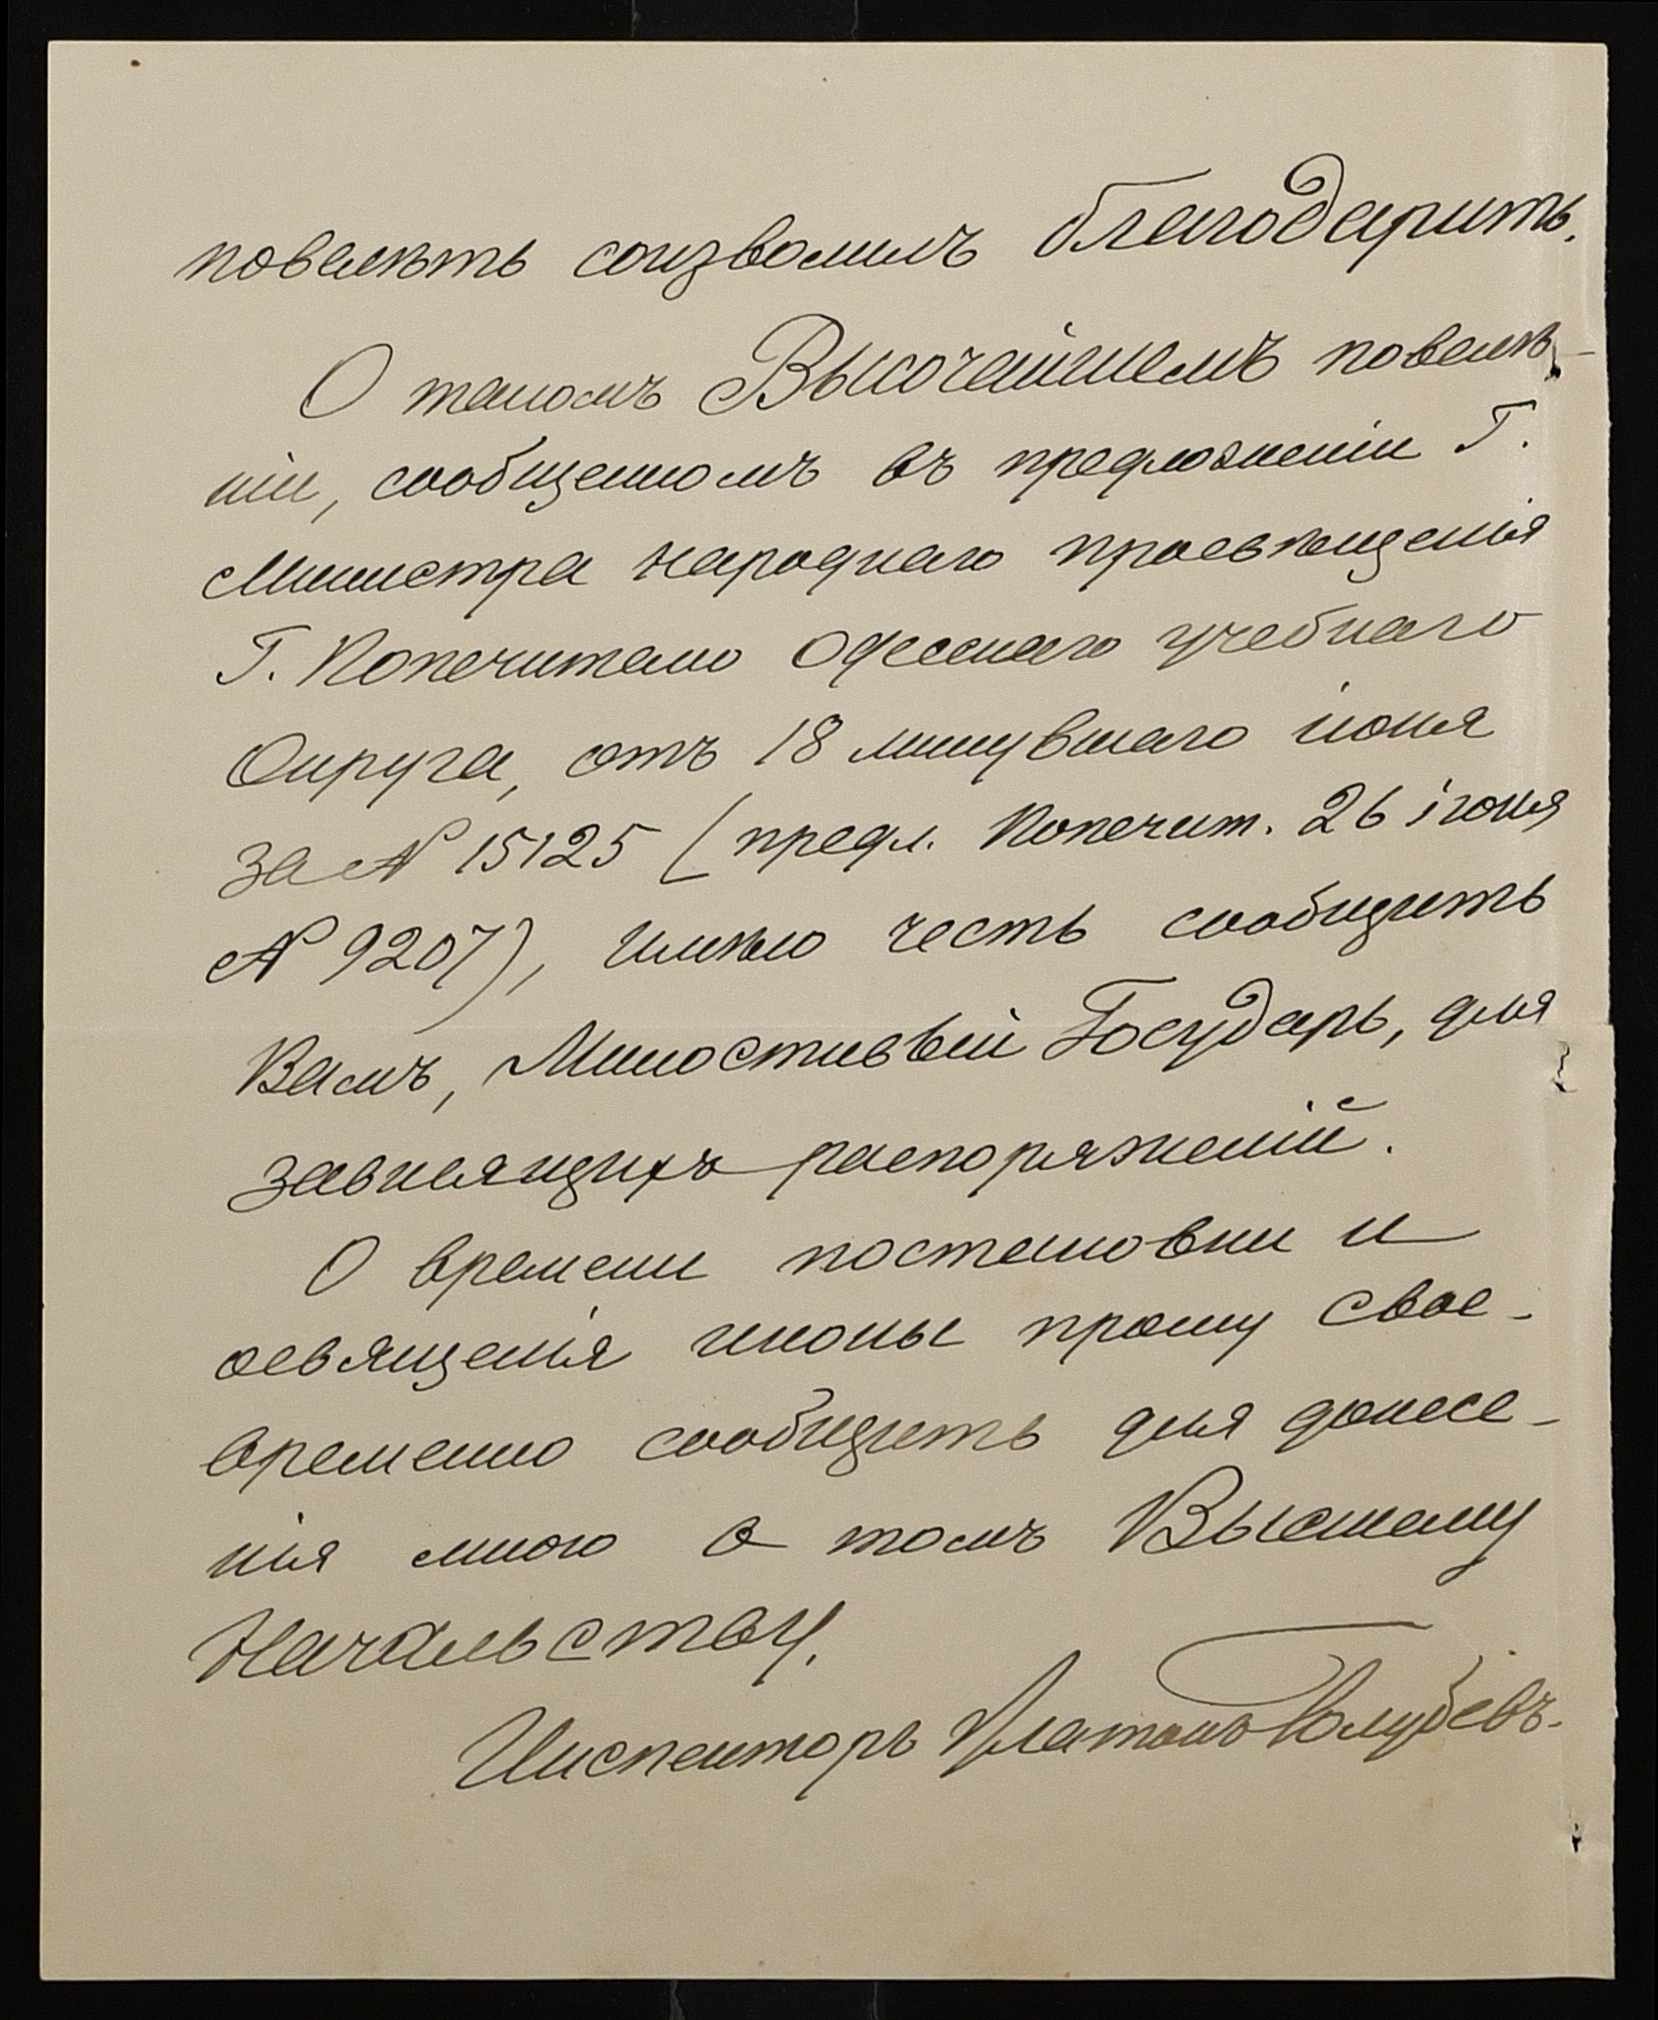 повелѣть соизволилъ благодарить.
О такомъ Высочайшемъ повелѣ-
ніи, сообщенномъ въ предложеніи Г.
Министра народнаго просвѣщенія
Г. Попечителю Одесскаго учебнаго
Округа, отъ 18 минувшаго іюня
за № 15125 (предл. Попечит. 26 іюня
№ 9207), имѣю честь сообщить
Вамъ, Милостивый Государь, для
зависящихъ распоряженій.
О времени постановки и
освященія иконы прошу свое-
временно сообщить для донесе-
нія мною о томъ Высшему
Начальству.
Инспекторъ Платонъ Голубевъ.